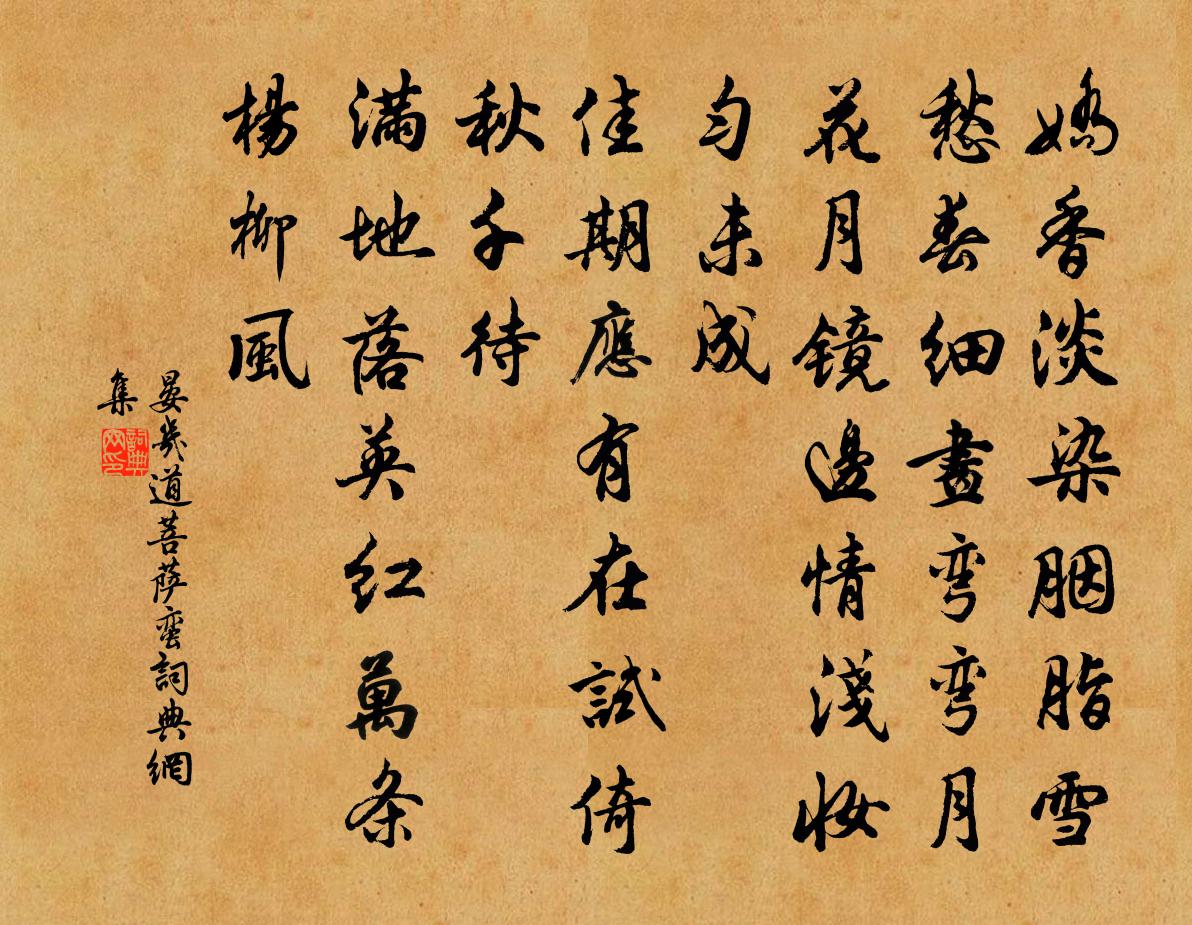 嬌香淡染胭脂雪
愁春細畫弯弯月
花月鏡邊情淺妆
匀未成
佳期應有在試倚
秋千待
滿地落英紅萬条
楊柳風
晏幾道菩萨蛮詞典網
集
詞典網印